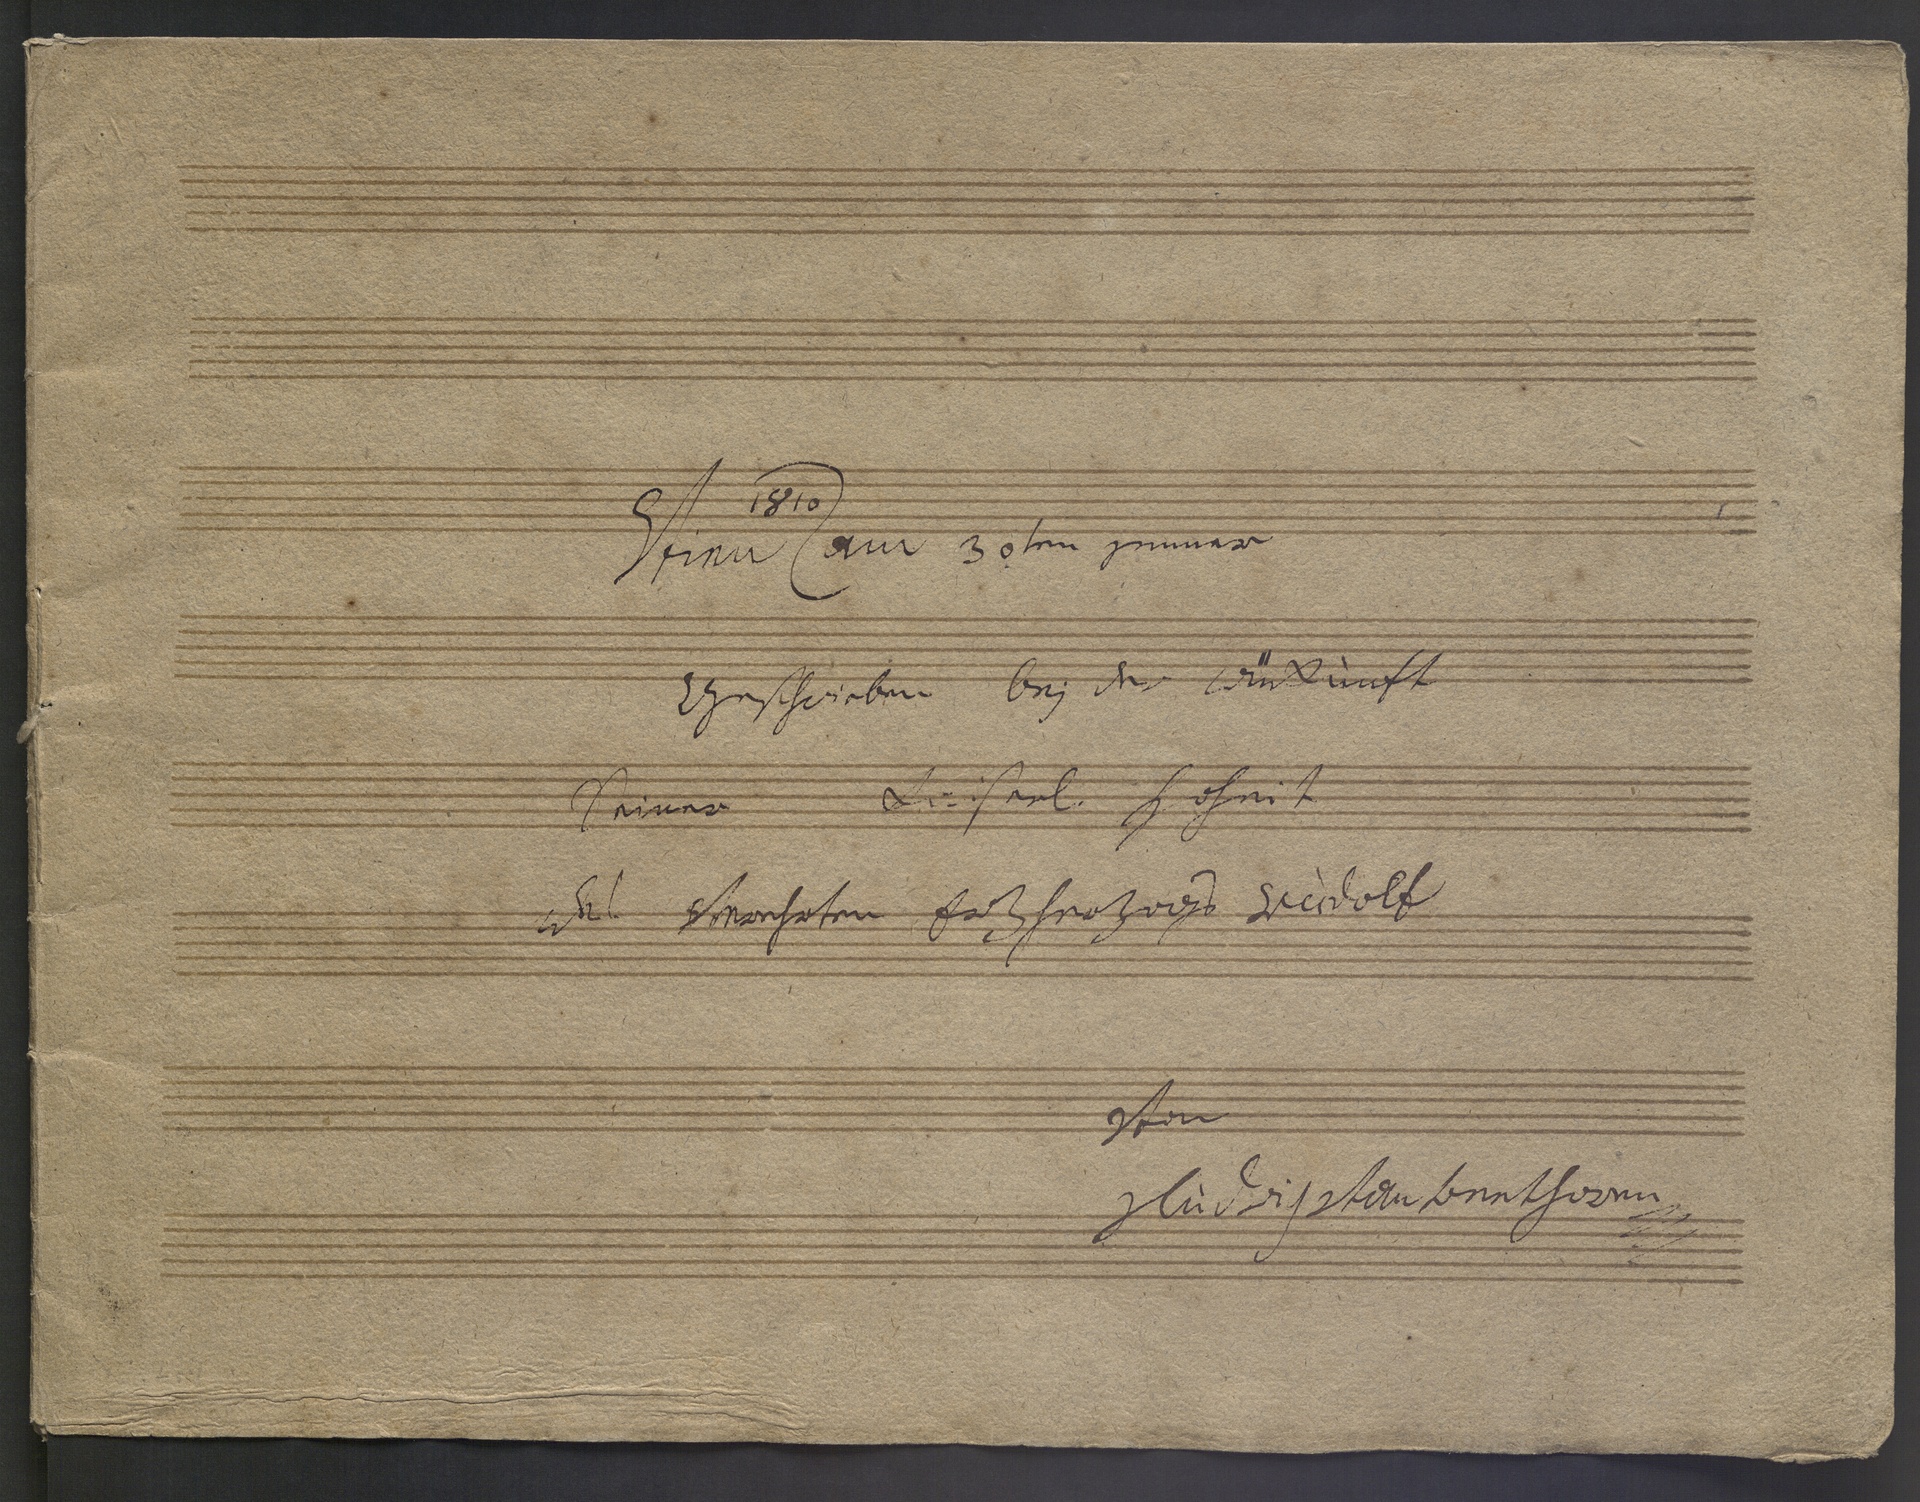 1810
Wien am 30ten januar
Geschrieben bej der Ankunft
Seiner Kaiserl. Hoheit
des Verehrten Erzherzogs Rudolf
Von
Ludwig van Beethoven